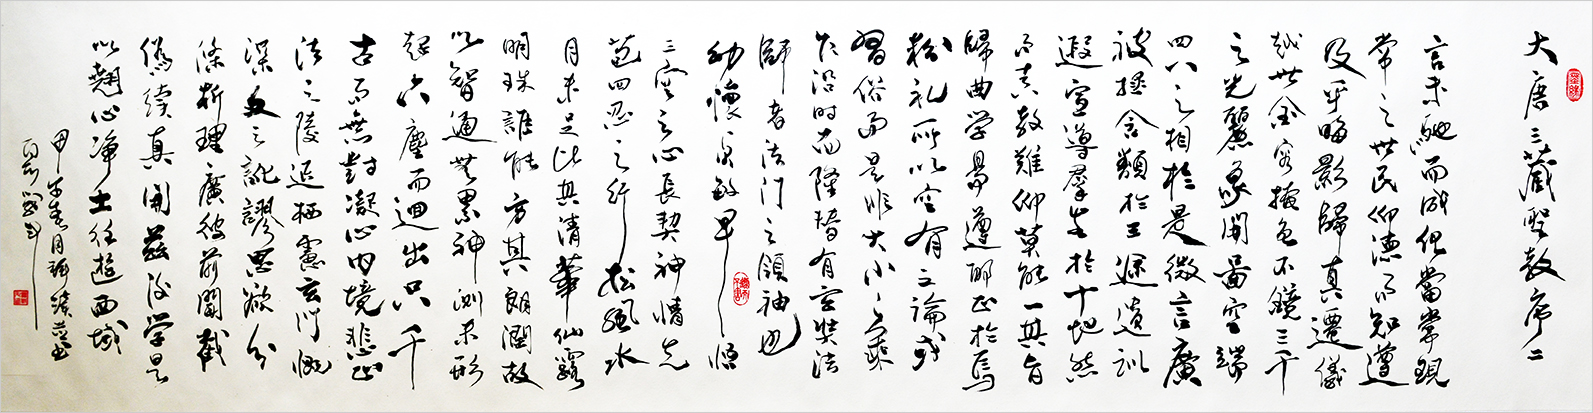 大唐三藏聖教序二
言未馳而成化當常現
常之世民仰德而知遵
及乎晦影歸真遷儀
越世金容掩色不鏡三千
之光麗象開圖空端
四八之相於是微言廣
被拯含類於三途遺訓
遐宣導羣生於十地然
而真教難仰莫能一其旨
歸曲学易遵邪正於焉
紛糺所以空有之論或
習俗而是非大小之乘
乍沿時而隆替有玄奘法
師者法門之領袖也
幼懷貞敏早悟
三空之心長契神情先
苞四忍之行松風水
月未足比其清華仙露
明珠詎能方其朗潤故
以智通無累神測未形
超六塵而迥出只千
古而無對凝心內境悲正
法之陵遲栖慮玄門慨
深文之訛謬思欲分
條析理廣彼前聞截
偽續真開茲後学是
以翹心淨土往遊西域
甲午春月